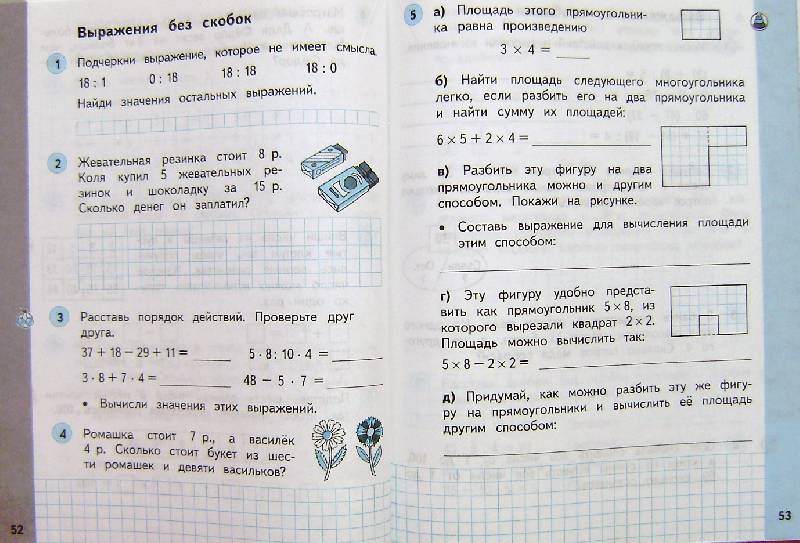 Выражения без скобок
1 Подчеркни выражение, которое не имеет смысла.
18 : 1 0 : 18 18 : 18 18 : 0
Найди значения остальных выражений.
2 Жевательная резинка стоит 8 р.
Коля купил 5 жевательных ре-
зинок и шоколадку за 15 р.
Сколько денег он заплатил?
3 Расставь порядок действий. Проверьте друг
друга.
37 + 18 − 29 + 11 = ______ 5 · 8 : 10 · 4 = ______
3 · 8 + 7 · 4 = ______ 48 − 5 · 7 = ______
• Вычисли значения этих выражений.
4 Ромашка стоит 7 р., а василёк
4 р. Сколько стоит букет из шес-
ти ромашек и девяти васильков?
52
5 а) Площадь этого прямоугольни-
ка равна произведению
3 × 4 = ____
б) Найти площадь следующего многоугольника
легко, если разбить его на два прямоугольника
и найти сумму их площадей:
6 × 5 + 2 × 4 = ______
в) Разбить эту фигуру на два
прямоугольника можно и другим
способом. Покажи на рисунке.
• Составь выражение для вычисления площади
этим способом:
г) Эту фигуру удобно предста-
вить как прямоугольник 5 × 8, из
которого вырезали квадрат 2 × 2.
Площадь можно вычислить так:
5 × 8 − 2 × 2 = ______
д) Придумай, как можно разбить эту же фигу-
ру на прямоугольники и вычислить её площадь
другим способом:
53